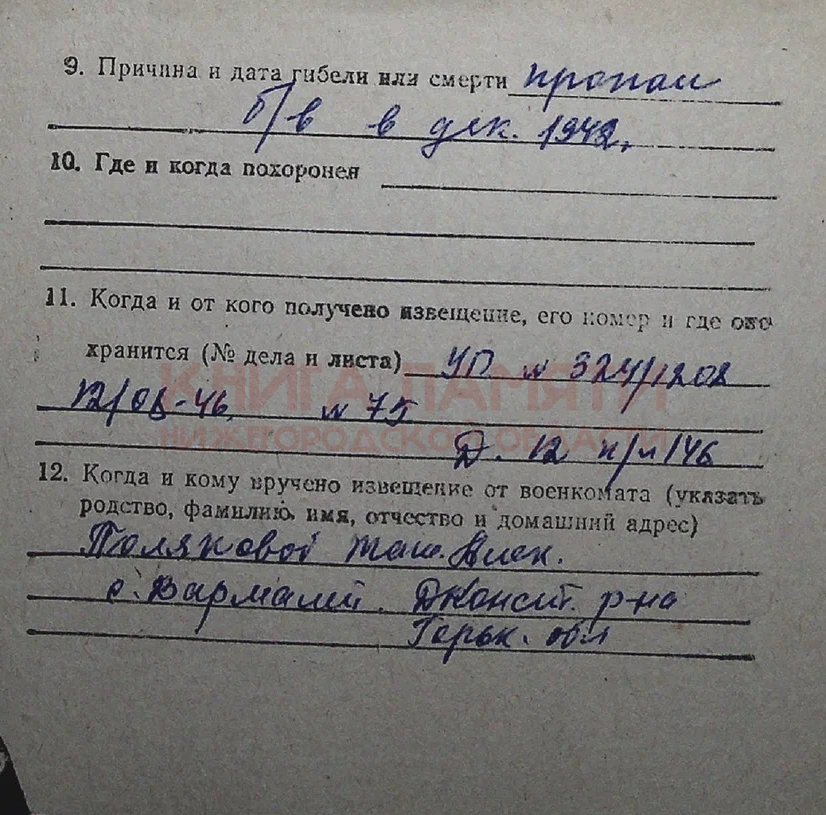 9. Причина и дата гибели или смерти пропал
б/в в дек. 1942.
10. Где и когда похоронен
11. Когда и от кого получено извещение, его номер и где оно
хранится (№ дела и листа) УП № 324/1202
12/08-46. № 75
КНИГА ПАМЯТИ
НИЖЕГОРОДСКОЙ ОБЛАСТИ
Д. 12 п/л 146
12. Когда и кому вручено извещение от военкомата (указать
родство, фамилию, имя, отчество и домашний адрес)
Поляковой
с. Вармалей. ДКонст. р-на
Горьк. обл